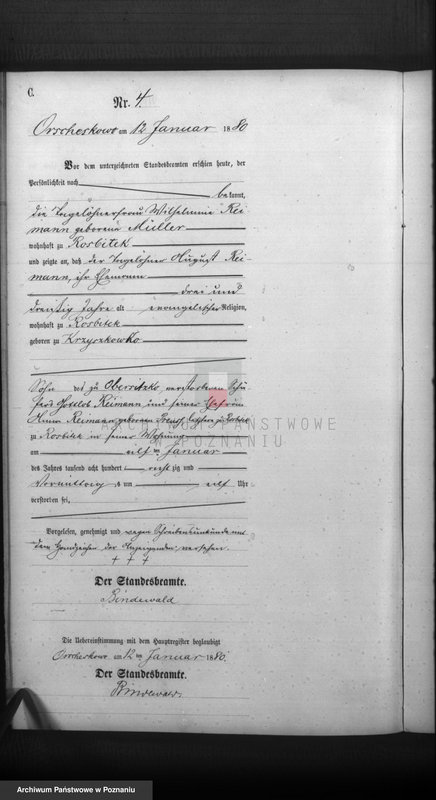 C.
Nr. 4.
Orscheskowo am 12 Januar 1880
Vor dem unterzeichneten Standesbeamten erschien heute, der
Persönlichkeit nach
bekannt,
die Tagelöhnerfrau Wilhelmine Rei
mann geborene Müller
wohnhaft zu Rosbitek
und zeigte an, daß der Tagelöhner August Rei
mann, ihr Ehemann
drei und
dreißig Jahre alt evangelischer Religion,
wohnhaft zu Rosbitek
geboren zu Krzyszkowko
Sohn des zu Obersitzko verstorbenen Schä
fers Gottlob Reimann und seiner Ehefrau
Anna Reimann geborenen letztere zu Rosbitek
zu Rosbitek in seiner Wohnung
am elf ten Januar
des Jahres tausend acht hundert acht zig und
Vormittag s um elf Uhr
verstorben sei,
Vorgelesen, genehmigt und wegen Schreibensunkunde mit
dem Handzeichen der Anzeigenden versehen.
† † †
Der Standesbeamte.
Bindewald
Die Uebereinstimmung mit dem Hauptregister beglaubigt
Orscheskowo am 12 ten Januar 1880.
Der Standesbeamte.
Bindewald.
ARCHIWUM PAŃSTWOWE
W POZNANIU
Archiwum Państwowe w Poznaniu